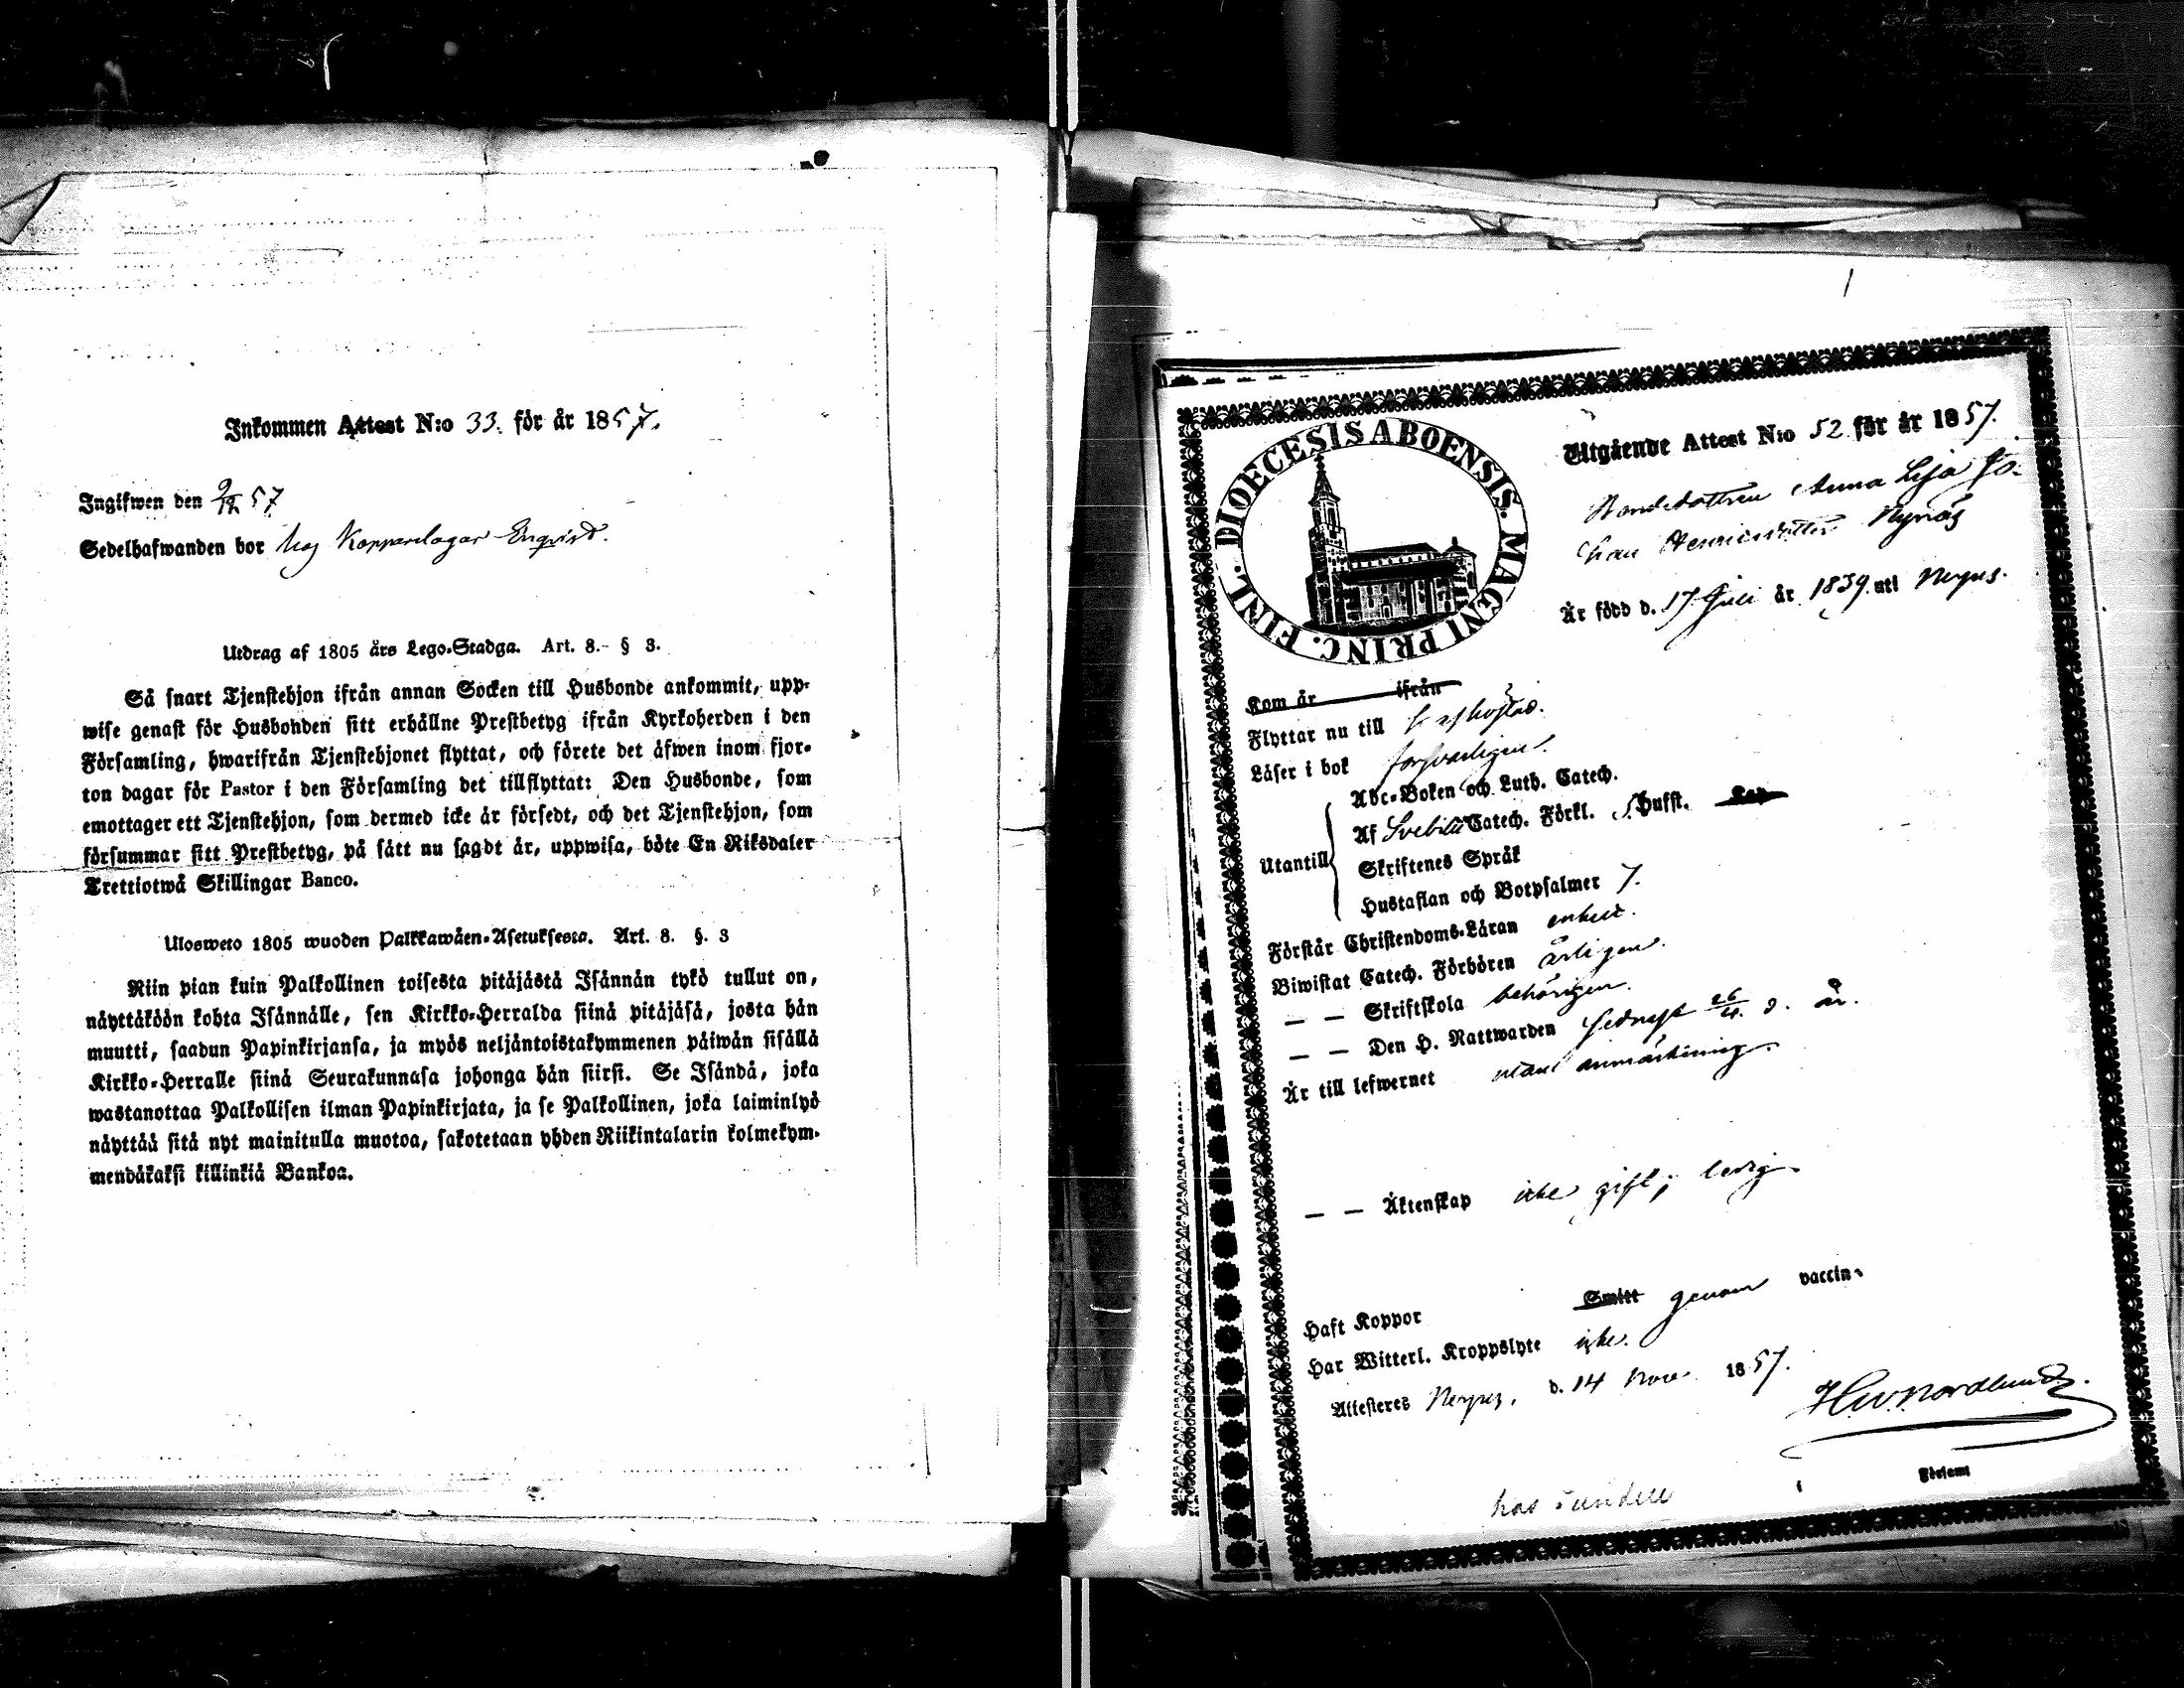 Inkommen Attest N:o 33. för år 1857.
Ingifwen den 9/12 57
Sedelhafwanden bor hos Kopparslagar Enqvist.
Utdrag af 1805 års Lego-Stadga. Art. 8.- § 3.
Så snart Tjenstehjon ifrån annan Socken till Husbonde ankommit, upp-
wise genast för Husbonden sitt erhållne Prestbetyg ifrån Kyrkoherden i den
Församling, hwarifrån Tjenstehjonet flyttat, och förete det äfwen inom fjor-
ton dagar för Pastor i den Församling det tillflyttat: Den Husbonde, som
emottager ett Tjenstehjon, som dermed icke är försedt, och det Tjenstehjon, som
försummar sitt Prestbetyg, på sätt nu sagdt är, uppwisa, böte En Riksdaler
Trettiotwå Skillingar Banco.
Ulosweto 1805 wuoden Palkkawäen-Asetuksesta. Art. 8. §. 3
Niin pian kuin Palkollinen toisesta pitäjästä Isännän tykö tullut on,
näyttäköön kohta Isännälle, sen Kirkko-Herralda siinä pitäjäsä, josta hän
muutti, saadun Papinkirjansa, ja myös neljäntoistakymmenen päiwän sisällä
Kirkko-Herralle siinä Seurakunnasa johonga hän siirsi. Se Isändä, joka
wastanottaa Palkollisen ilman Papinkirjata, ja se Palkollinen, joka laiminlyö
näyttää sitä nyt mainitulla muotoa, sakotetaan yhden Riikintalarin kolmekym-
mendäkaksi killinkiä Bankoa.
DIOECESIS ABOENSIS. MAGNI PRINC. FINL.
Utgående Attest N:o 52 för år 1857.
Bondedottren Anna Lisa Jo-
han Henricsdotter Nynäs
Är född d. 17 Juli år 1839. uti Nerpes.
Kom år ifrån
Flyttar nu till
Läser i bok försvarligen.
Utantill
Abc-Boken och Luth. Catech.
Af Svebilii Catech. Förkl. 5. Hufst.
Skriftenes Språk
Hustaflan och Botpsalmer 7.
Förstår Christendoms-Läran enkelt.
Biwistat Catech. Förhören årligen.
— — Skriftskola behörigen.
— — Den H. Nattwarden sednast 26/4. d. år.
Är till lefwernet utan anmärkning.
— — Äktenskap icke gift; ledig.
Haft Koppor Smitt genom vaccin.
Har Witterl. Kroppslyte icke.
Attesteres Nerpes, d. 14 Nov. 1857.
Nordlund
Församl
hos